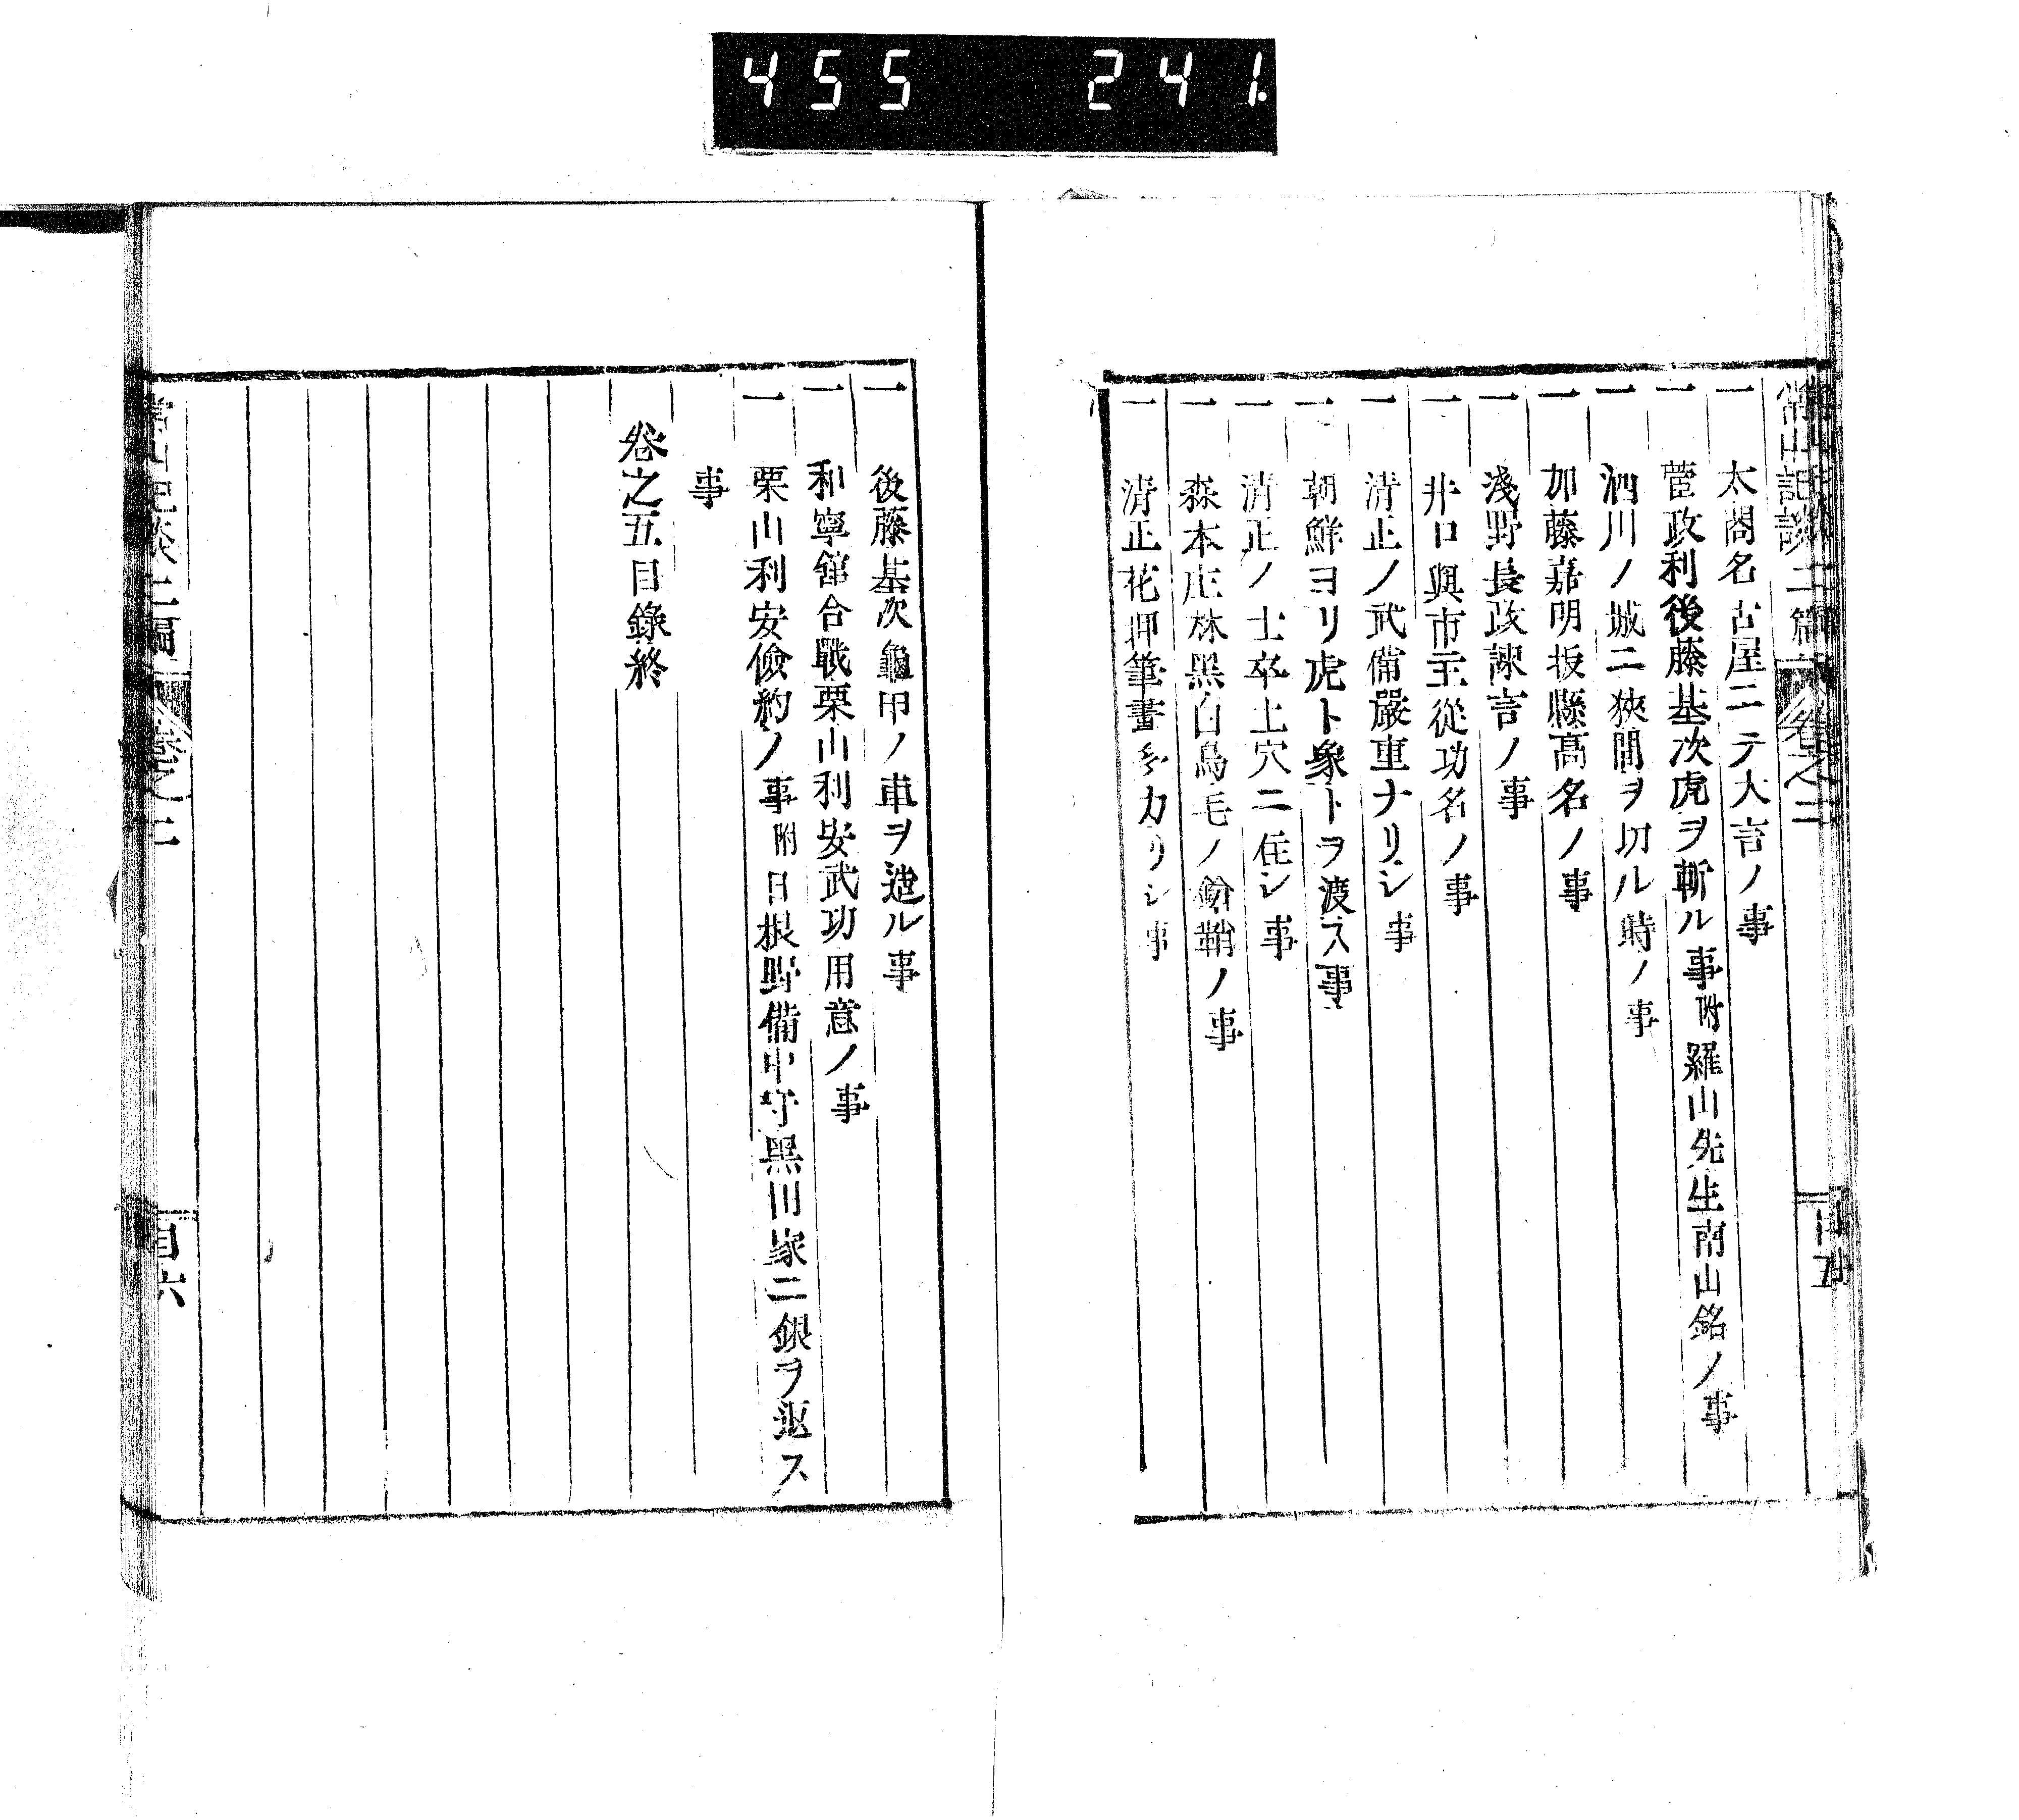 455 241.
常山記談二篇 卷之二
一 太閤名古屋ニテ大吉ノ事
一 菅政利後藤基次虎ヲ斬ル事附羅山先生南山銘ノ事
一 泗川ノ城ニ狹間ヲ切ル時ノ事
一 加藤嘉明扳懸高名ノ事
一 淺野長政諫言ノ事
一 井口與市主從功名ノ事
一 清正ノ武備嚴重ナリシ事
一 朝鮮ヨリ虎ト象トヲ渡ス事
一 清正ノ士卒土穴ニ住シ事
一 森本庄林黑白鳥毛ノ鎗鞘ノ事
一 清正花押筆畫多カリシ事
一 後藤基次龜甲ノ車ヲ造ル事
一 和寧舘合戰栗山利安武功用意ノ事
一 栗山利安儉約ノ事附日根野備中守黑田家ニ銀ヲ返ス
事
卷之五目錄終
目六